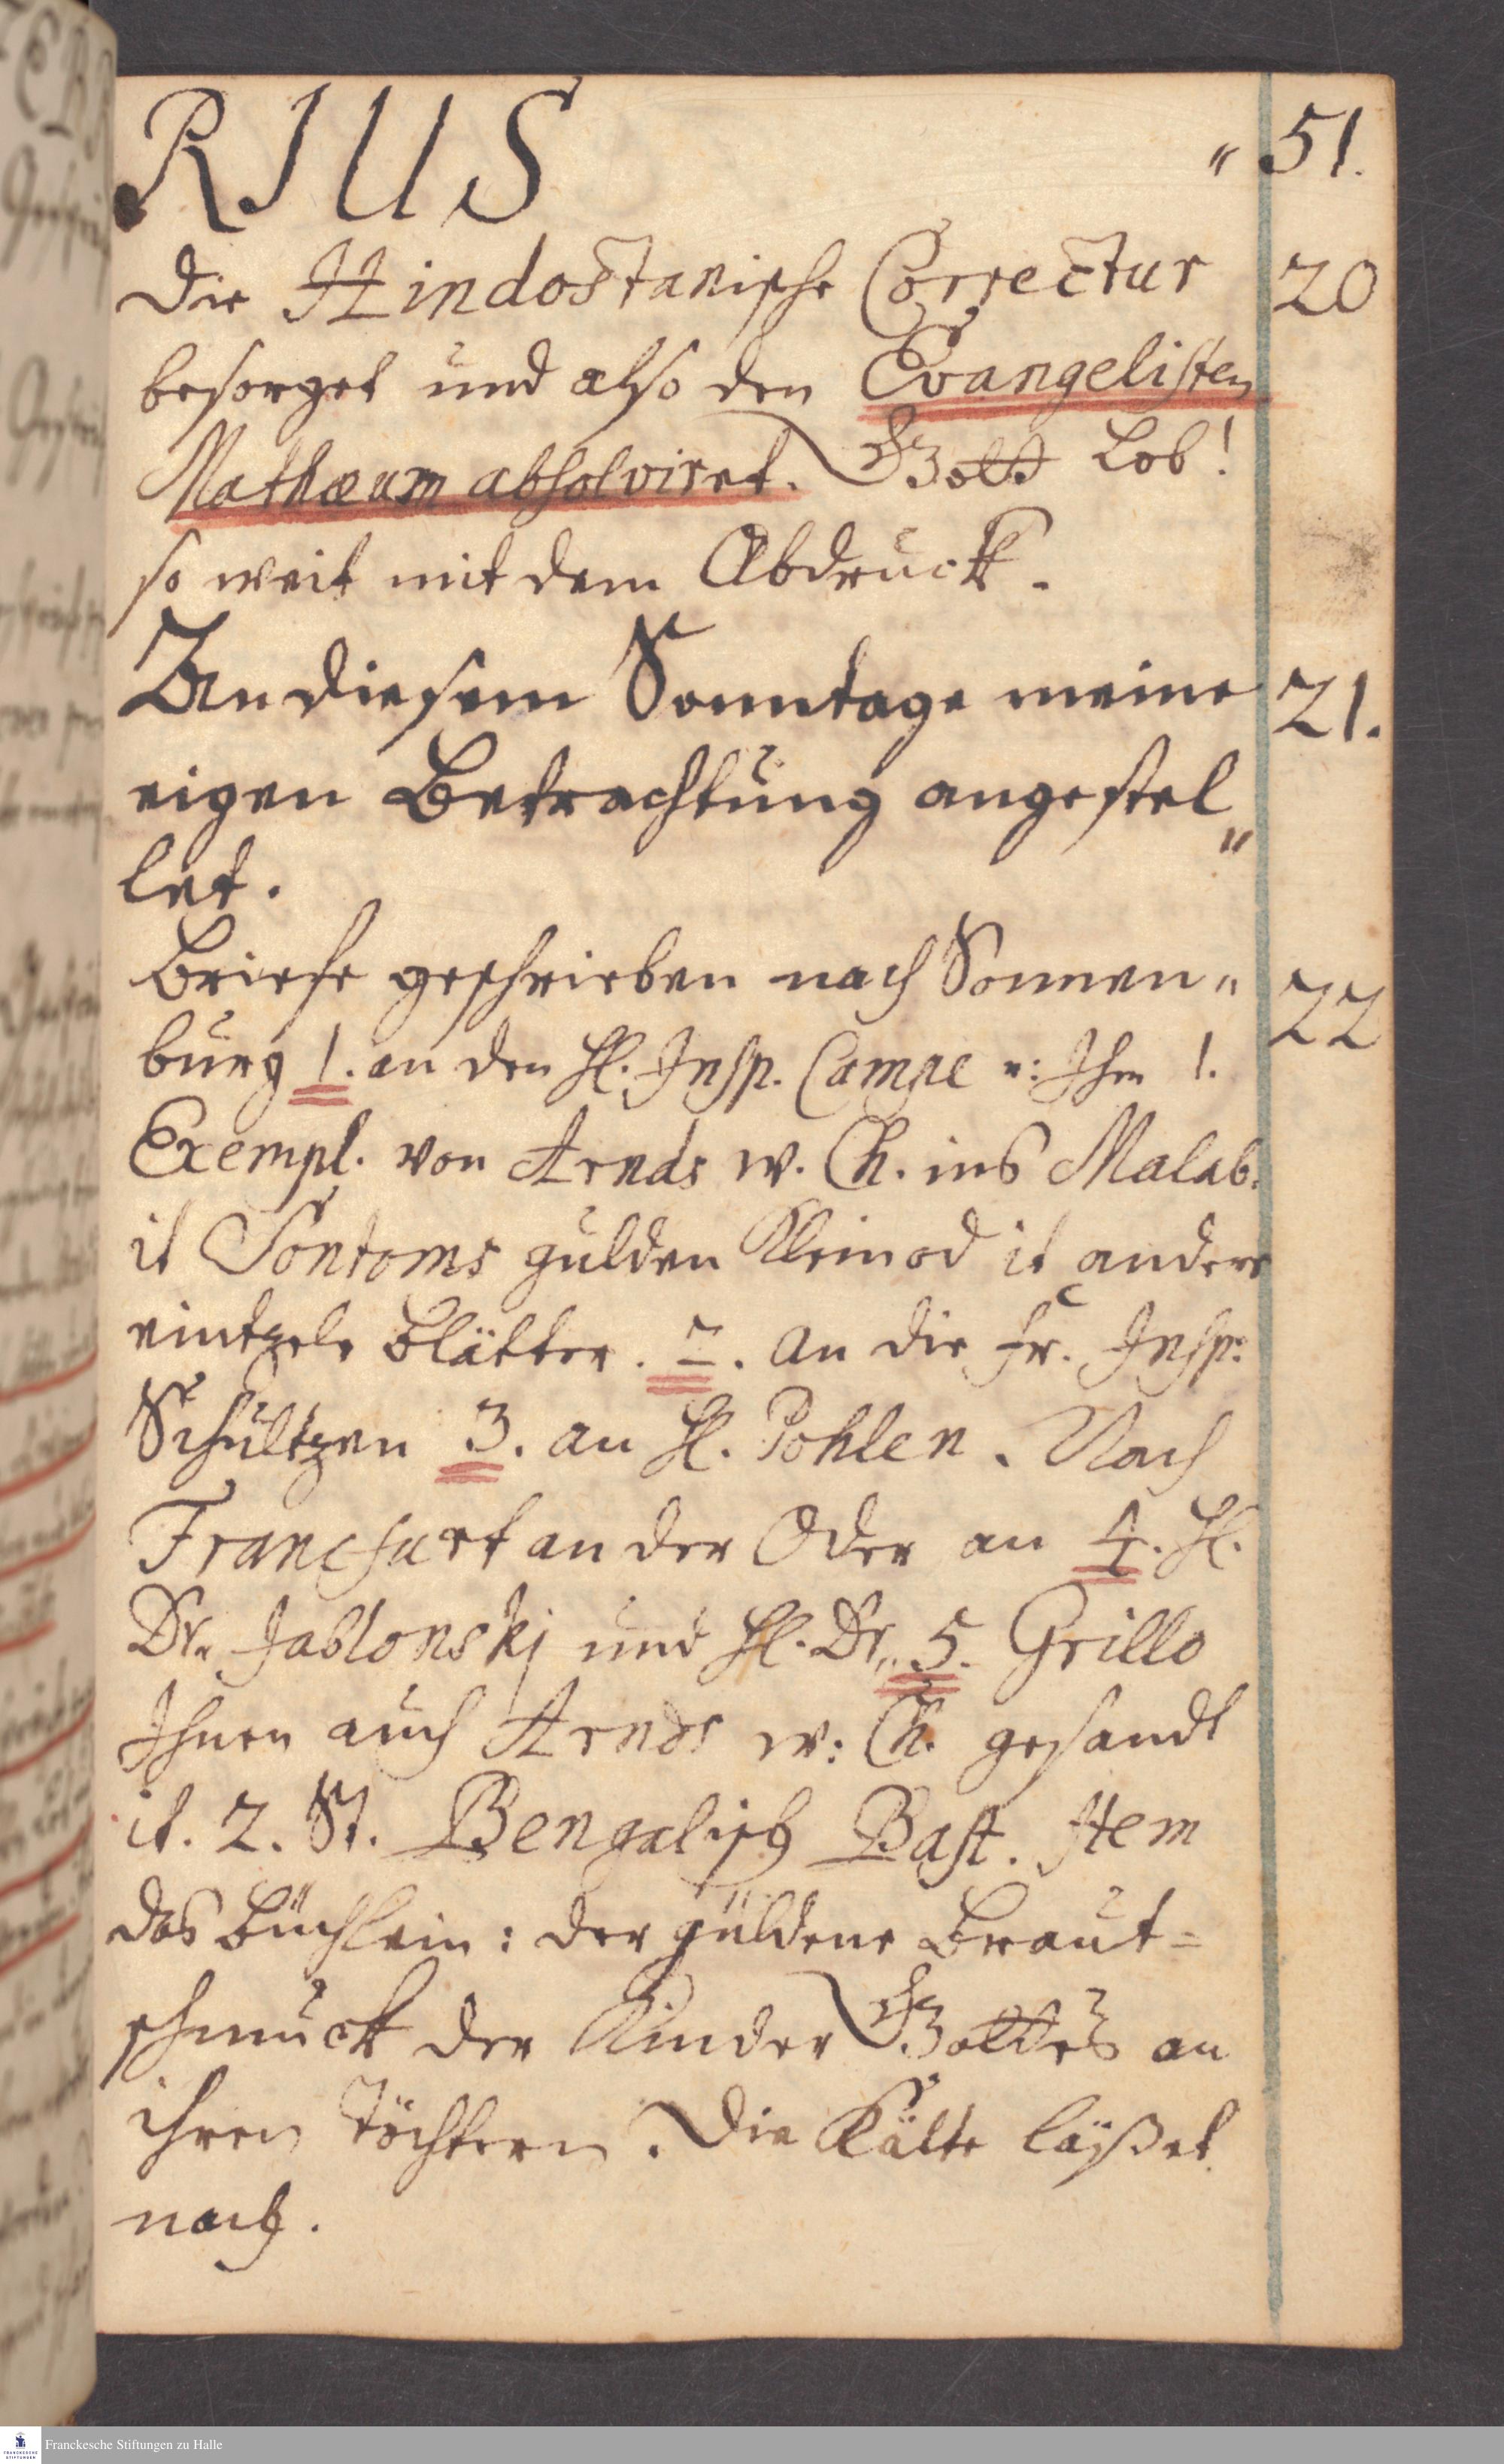 RIUS " 51.
Die Hindostanische Correctur 20
besorget und also den Evangelisten
Mathæum absolviret. Gott Lob!
so weit mit dem Abdruck.
An diesem Sonntage meine 21.
eigen Betrachtung angestel"
let.
Briefe geschrieben nach Sonnen" 22
burg 1. an den H. Insp. Campe u: Ihm 1.
Exempl. von Arnds w. Ch. ins Malab.
it Sontoms gulden Kleinod it andere
eintzele Blätter. 2. an die Fr. Insp:
Schultzen 3. an H. Pohlen. Nach
Francfurt an der Oder an 4. H.
Dr. Jablonski und H. Dr. 5. Grillo
Ihnen auch Arnds w: Ch. gesandt
it. 2. St. Bengalisch Bast. Item
das Büchlein: der güldene Braut=
schmuck der Kinder Gottes an
ihren Töchtern. Die Kälte läßet
nach.
FRANCKESCHE STIFTUNGEN
Franckesche Stiftungen zu Halle